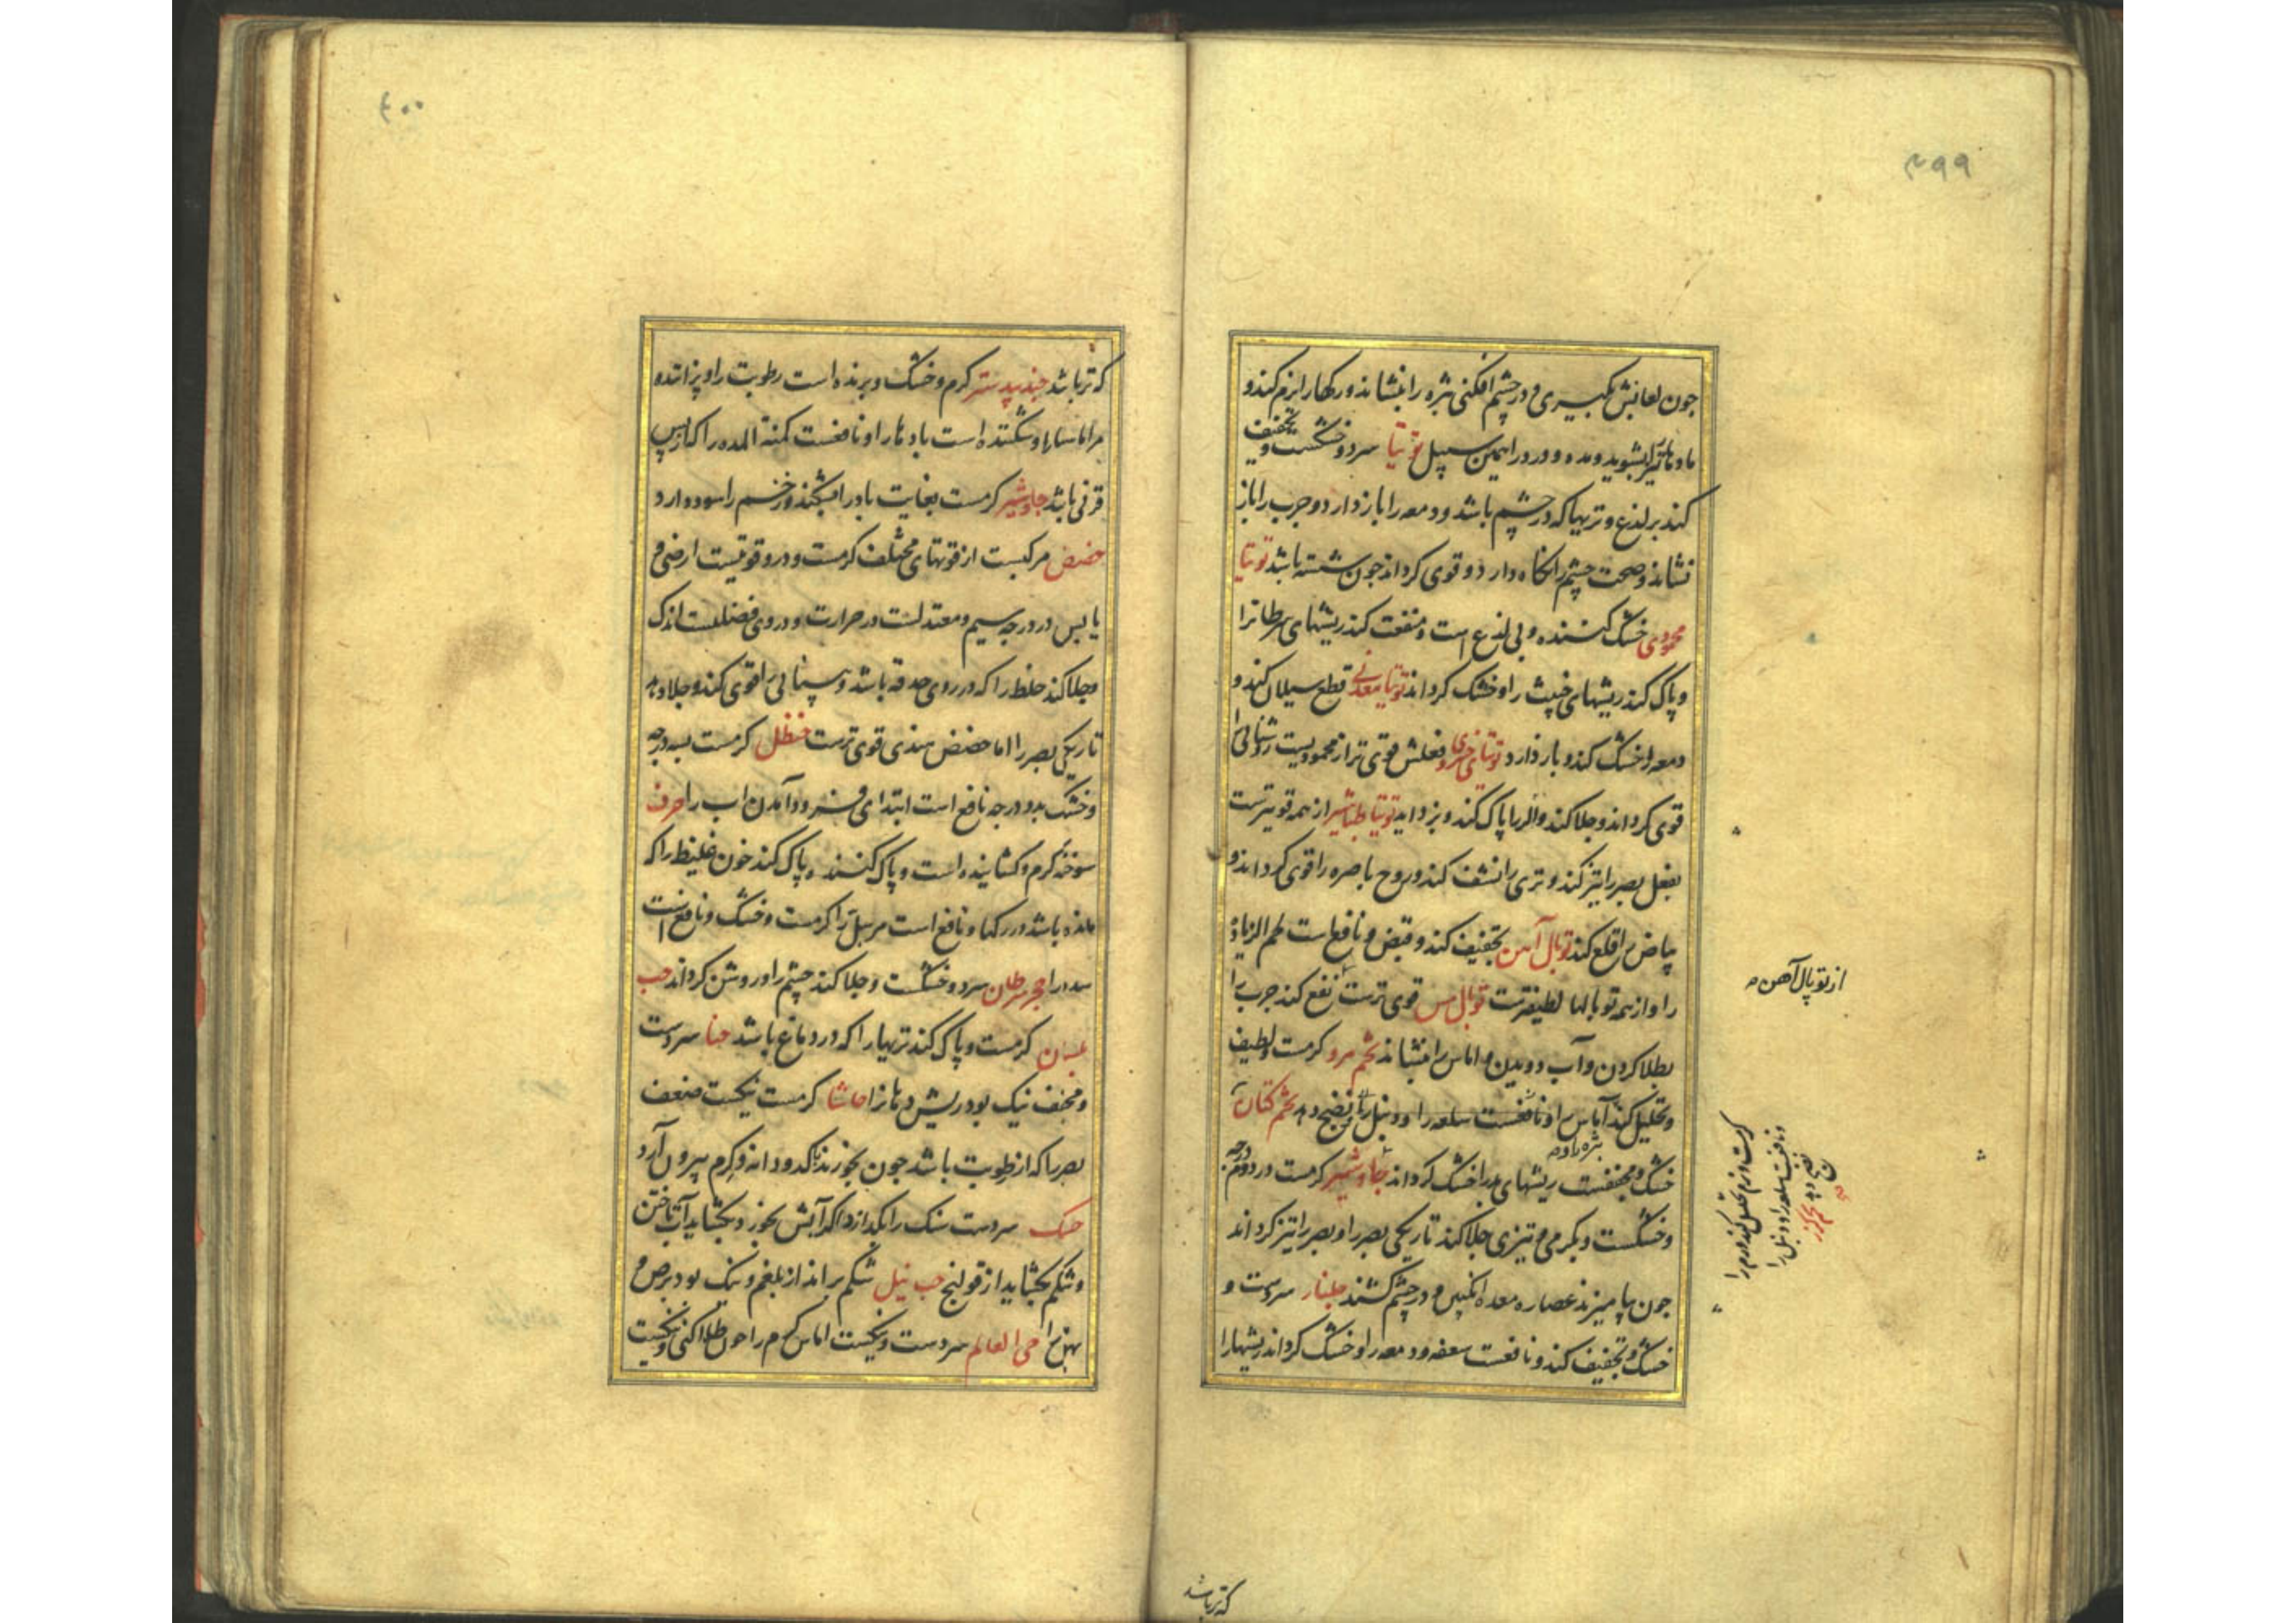 ۳۹۹
جون لعابش بکیری و در چشم افکنی بثره را بنشاند و رکها را نرم کند و
مادهٔ تیز را بشوید و مده و درد را همین سبیل توتیا سرد و خشکست و تجفیف
کند بر لذع و تریها که در چشم باشد و دمعه را باز دارد و جرب را باز
نشاند و صحت چشم را نکاه دارد و قوی کرداند جون شسته باشد توتیا
محمودی خشک کننده و بی لذع است و منفعت کند ریشهای سرطانرا
و پاک کند ریشهای خبیث را و خشک کرداند توتیا معدنی قطع سیلان کند و
دمعه را خشک کند و باز دارد توتیا و فعلش قوی تر از محمودیست روشنائی را
قوی کرداند و جلا کند و اثر را پاک کند و بزداید توتیا طباشیر از همه قویترست
بفعل بصر را تیز کند و تری را نشف کند و روح باصره را قوی کرداند و
بیاض را قلع کند توبال آهن تجفیف کند و قبض و نافع است لحم الزیاده
را و از همه توبالها لطیفترست توبال مس قوی ترست نفع کند جرب را
بطلا کردن و آب دویدن و اماس را بنشاند تخم مرو کرمست و لطیف
و تحلیل کند آماس را و نافعست سلعه را و دنبل را و نضج دهد تخم کتان
بثره را و
خشک و مجففست ریشهای را خشک کرداند جاوشیر کرمست در دوم درجه
و خشکست و بکرمی و تیزی جلا کند تاریکی بصر را و بصر را تیز کرداند
جون بیامیزند عصاره معده انکبین و در چشم کشند جلنار سردست و
خشک و تجفیف کند و نافعست سعفه و دمعه را و خشک کرداند ریشها را
از توبال آهن
کرمست و نرم و تحلیل کند ورم را
و نافعست سلعه را و دنبل را
نضج دهد تخم کزر
که تر باشد
۴۰۰
که تر باشد جندبیدستر کرم و خشک و برنده است رطوبت را و پزانندهٔ
مر اماسها را و شکننده است بادها را و نافعست کمنة المده را که از پس
قرنی باشد جاوشیر کرمست بغایت باد را بشکند و زخم را سود دارد
حضض مرکبست از قوتهای مختلف کرمست و درو قوتیست ارضی و
یابس در درجه سیم و معتدلست در حرارت و در وی فضلیست اندک
و جلا کند خلط را که در روی حدقه باشد و بینائی را قوی کند و جلا دهد
تاریکی بصر را اما حضض هندی قوی ترست حنظل کرمست بسه درجه
و خشک بدو درجه نافع است ابتدای فرود آمدن اب را حرف
سوخته کرم و کشاینده است و پاک کننده و پاک کند خون غلیظ را که
مانده باشد در رکها و نافع است مر سبل را کرمست و خشک و نافع است
سدد را حجر سرطان سرد و خشکست و جلا کند چشم را و روشن کرداند حب
بلسان کرمست و پاک کند تریها را که در دماغ باشد حنا سردست
و مجفف نیک بود ریش دهان را حاشا کرمست نیکست ضعف
بصر را که از رطوبت باشد جون بخورند کدودانه و کرم بیرون آرد
حسک سردست سنک را بکدازد اکر آبش بخورد و بکشاید آب تاختن
و شکم بکشاید از قولنج حب نیل شکم براند از بلغم و نیک بود برص و
بهق را حی العالم سردست و نیکست اماس کرم را جون طلا کنی و نیکست